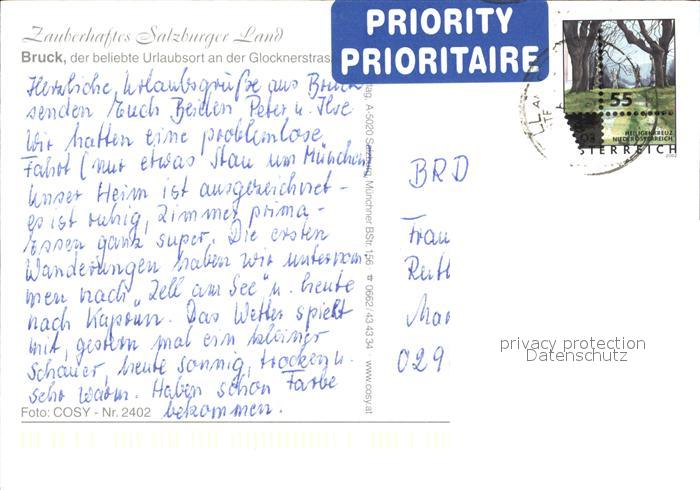 Zauberhaftes Salzburger Land
Bruck, der beliebte Urlaubsort an der Glocknerstras
PRIORITY
PRIORITAIRE
55
HEILIGENKREUZ
NIEDERÖSTERREICH
STERREICH
2002
Herzliche Urlaubsgrüße aus Bruck
senden Euch Beiden Peter u. Ilse
Wir hatten eine problemlose
Fahrt (nur etwas Stau um München
Unser Heim ist ausgezeichnet -
es ist ruhig, Zimmer prima -
Essen ganz super. Die ersten
Wanderungen haben wir unternom
men nach "Zell am See" u. heute
nach Kaprun. Das Wetter spielt
mit, gestern mal ein kleiner
Schauer, heute sonnig, trocken u.
sehr warm. Haben schon Farbe
bekommen.
Foto: COSY - Nr. 2402
lag, A-5020 Salzburg, Münchner BStr. 156 0662/43 43 34 www.cosy.at
BRD
Frau
029
privacy protection
Datenschutz